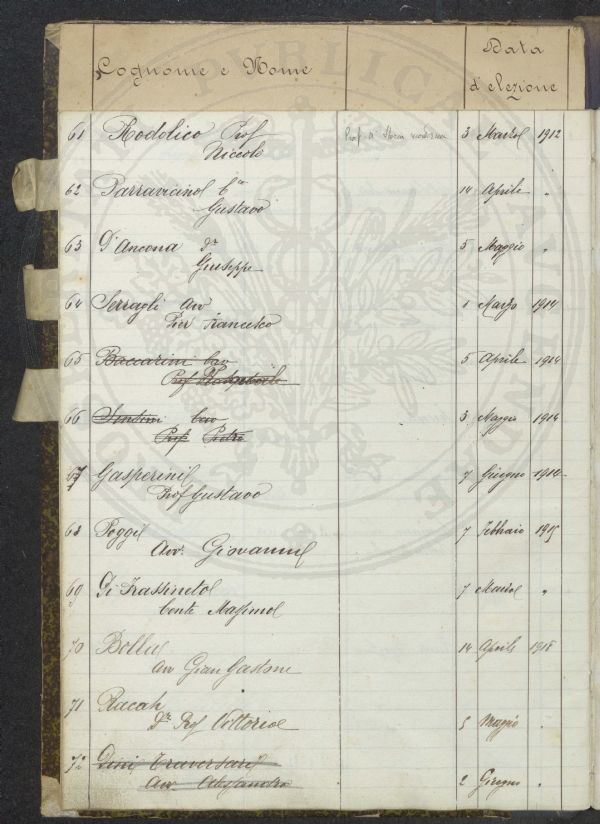 Cognome e Nome
Data d'elezione
61 Rodolico Prof Niccolò
Prof di Storia moderna
3 Marzo 1912
62 Parravicino Cte Gustavo
14 Aprile "
63 D'Ancona Dr Giuseppe
5 Maggio "
64 Serragli Avv Pier Francesco
1 Marzo 1914
65 Baccarini Cav Prof
5 Aprile 1914
66 Sensini Cav Prof Pietro
3 Maggio 1914
67 Gasperini Prof Gustavo
7 Giugno 1914
68 Poggi Avv. Giovanni
7 Febbraio 1915
69 Di Frassineto Conte Massimo
7 Marzo "
70 Bolla Avv Gian Gastone
14 Aprile 1918
71 Racah Dr Prof Vittorio
5 Maggio "
72 Dini Traversari Avv Alessandro
2 Giugno "